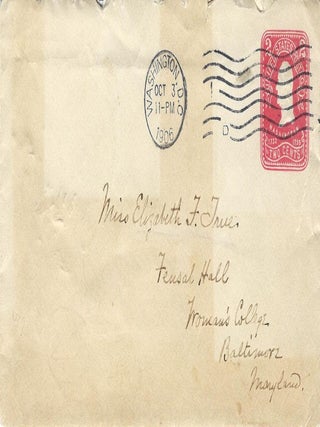 WASHINGTON D.C.
OCT 3
11-PM
1906
D
STATES
TWO CENTS
Miss Elizabeth F. True.
Fensal Hall
Woman's College
Baltimore
Maryland.